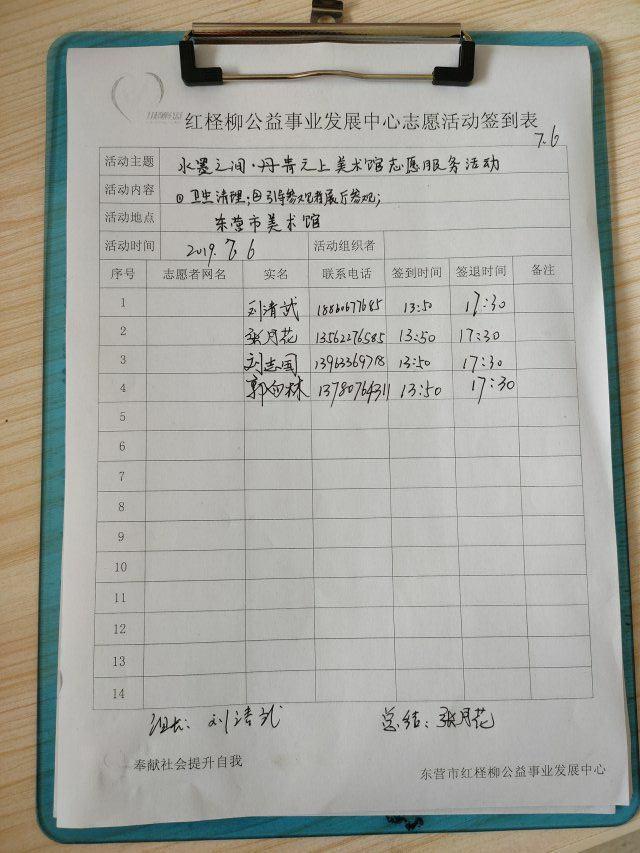 红柽柳公益事业发展中心志愿活动签到表
7.6
活动主题 水墨之间·丹青之上美术馆志愿服务活动
活动内容 ①卫生清理;②引导参观者展厅参观;
活动地点 东营市美术馆
活动时间 2019.7.6 活动组织者
序号 志愿者网名 实名 联系电话 签到时间 签退时间 备注
1 刘清武 13:50 17:30
2 张月花 13562276585 13:50 17:30
3 刘志国 13963369718 13:50 17:30
4 13780764311 13:50 17:30
5
6
7
8
9
10
11
12
13
14
组长:刘清武 总结:张月花
奉献社会提升自我
东营市红柽柳公益事业发展中心